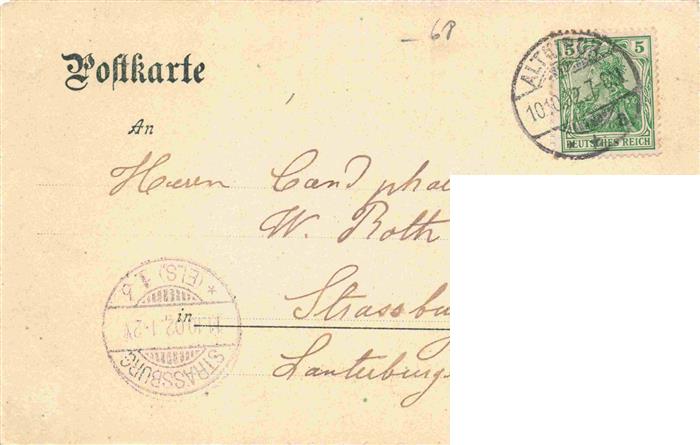 68
Postkarte
5 5
DEUTSCHES REICH
ALTKIRCH
10.10
An
Herrn Cand phar
W. Roth
Strassbu
in
Lauterburg
STRASSBURG
* (ELS.) 1. b
11.10.02.1-2V.